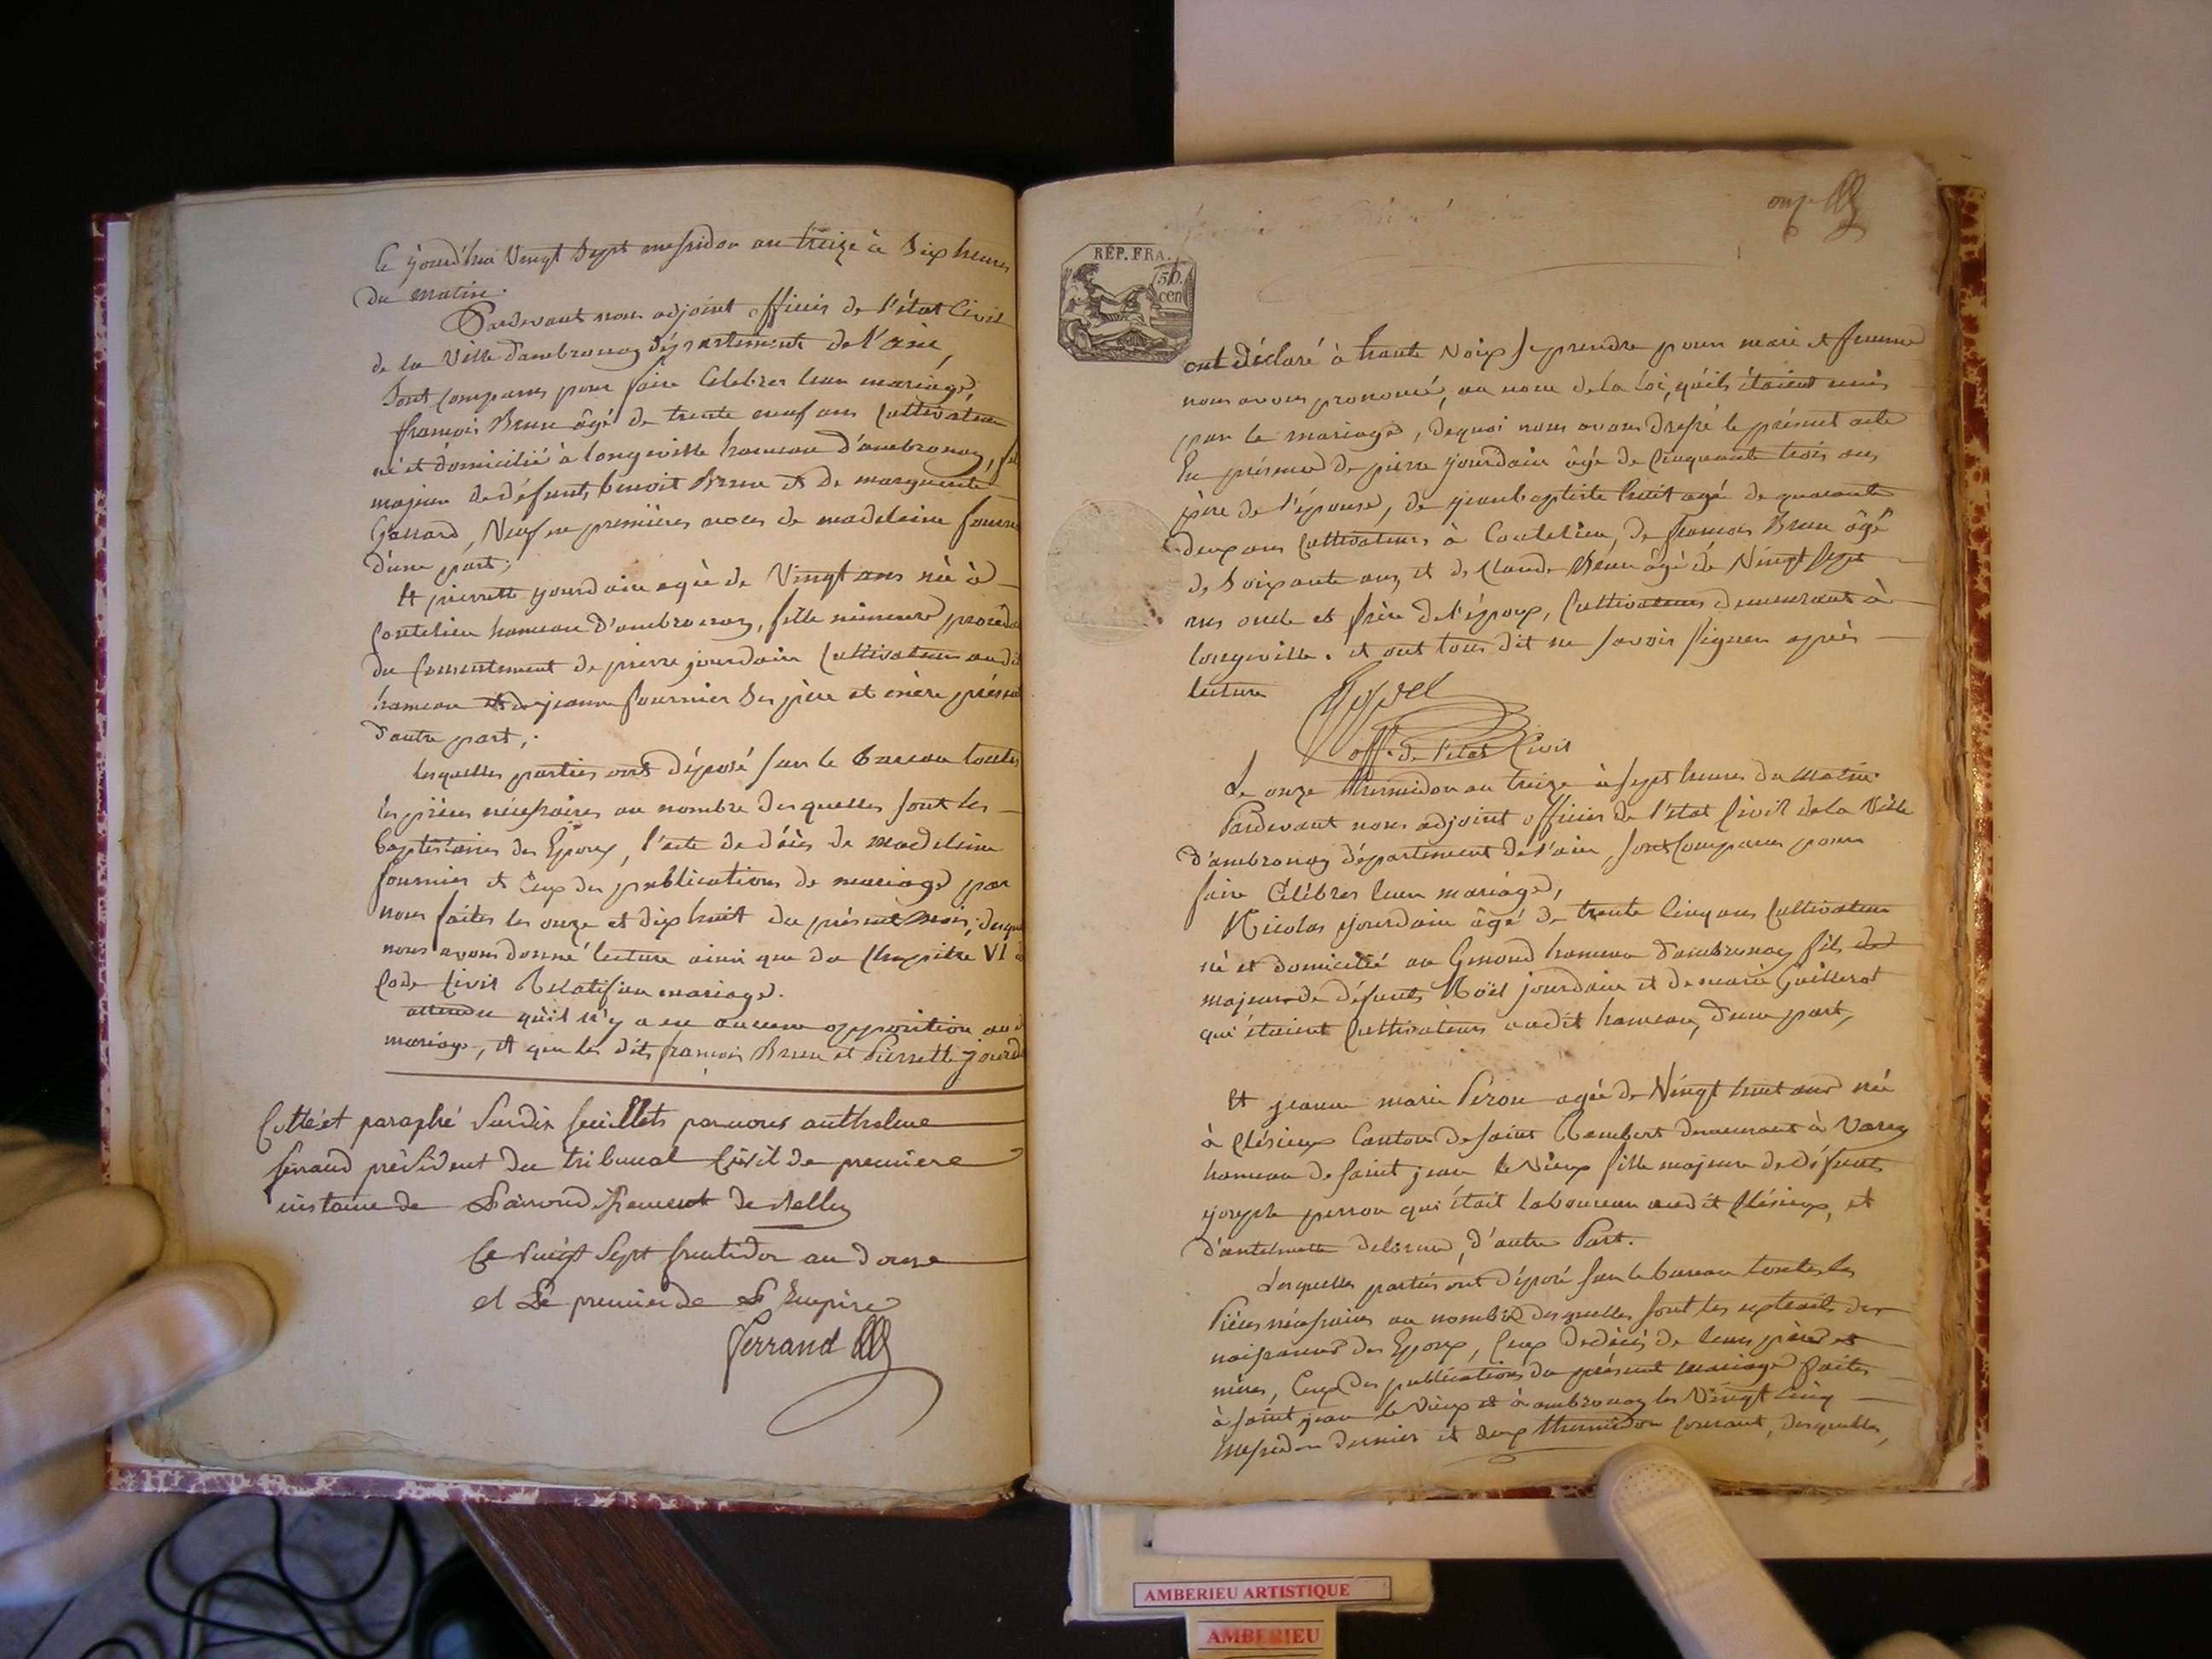 Ce jourd'hui Vingt Sept messidor an treize à Six heures
du matin.
Pardevant nous adjoint officier de l'état Civil
de la Ville d'ambronay département de l'ain,
Sont comparus pour faire Célébrer leur mariage,
françois Brun âgé de trente neuf ans Cultivateur
né et domicilié à longeville hameau d'ambronay, fils
majeur de défunts benoit Brun et de marguerite
Veuf en premières noces de madelaine
d'une part;
Et pierrette jourdain agée de Vingt ans née à
Coutelieu hameau d'ambronay, fille mineure
du Consentement de pierre jourdain Cultivateur
hameau et de jeanne fournier Ses père et mère
d'autre part;
lesquelles parties ont déposé sur le bureau toutes
les pièces nécessaires au nombre desquelles sont les
baptistaires des Epoux, l'acte de décès de madelaine
fournier et Ceux des publications de mariage par
nous faites les onze et dix huit du présent mois;
nous avons donné lecture ainsi que du Chapitre VI
Code Civil Relatif au mariage.
attendu qu'il n'y a eu aucune opposition
mariage, et que les dits françois Brun et Pierrette
Cotté et paraphé Sur dix feuillets par nous anthelme
ferrand président du tribunal Civil de premiere
instance de L'arrondissement de Belley
Ce vingt Sept fructidor an douze
et Le premier de L'Empire
ferrand
onze
RÉP. FRA.
50
cen
ont déclaré à haute Voix se prendre pour mari et femme
nous avons prononcé, au nom de la loi, qu'ils étaient unis
par le mariage, dequoi nous avons dressé le présent acte
En présence de pierre jourdain âgé de Cinquante trois ans
père de l'épouse, de jeanbaptiste agé de quarante
deux ans Cultivateurs à Coutelieu, de françois Brun âgé
de Soixante ans, et de Claude Brun âgé de Vingt Sept
ans oncle et frère de l'époux, Cultivateurs demeurant à
longeville. et ont tous dit ne savoir signer après
lecture
off. de l'état Civil
Le onze thermidor an treize à sept heures du matin.
Pardevant nous adjoint officier de l'état Civil de la Ville
d'ambronay département de l'ain, sont Comparus pour
faire Célébrer leur mariage,
Nicolas jourdain âgé de trente Cinq ans Cultivateur
né et domicilié au Genoud hameau d'ambronay fils
majeur de défunts Noël jourdain et de marie Guillerot
qui étaient Cultivateurs audit hameau, d'une part,
Et jeanne marie Péron agée de Vingt huit ans née
à Clésieux Canton de saint Rambert demeurant à Varey
hameau de saint jean le Vieux fille majeure de défunts
joseph perron qui était laboureur audit Clésieux, et
d'antelmette delorme, d'autre Part.
Lesquelles parties ont déposé sur le bureau toutes les
Pièces nécessaires au nombre desquelles sont les extraits des
naissances des Epoux, Ceux de décès de leurs pères et
mères, Ceux des publications du présent mariage faites
à saint jean le Vieux et à ambronay les Vingt cinq
messidor dernier et deux thermidor Courant, desquelles,
AMBERIEU ARTISTIQUE
AMBERIEU